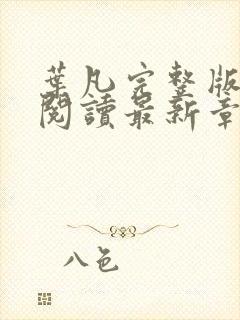 葉凡完整版
閱讀最新章
八色